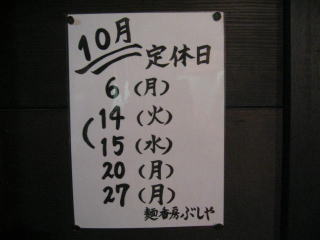 10月
定休日
6(月)
14(火)
15(水)
20(月)
27(月)
麺香房ぶしや